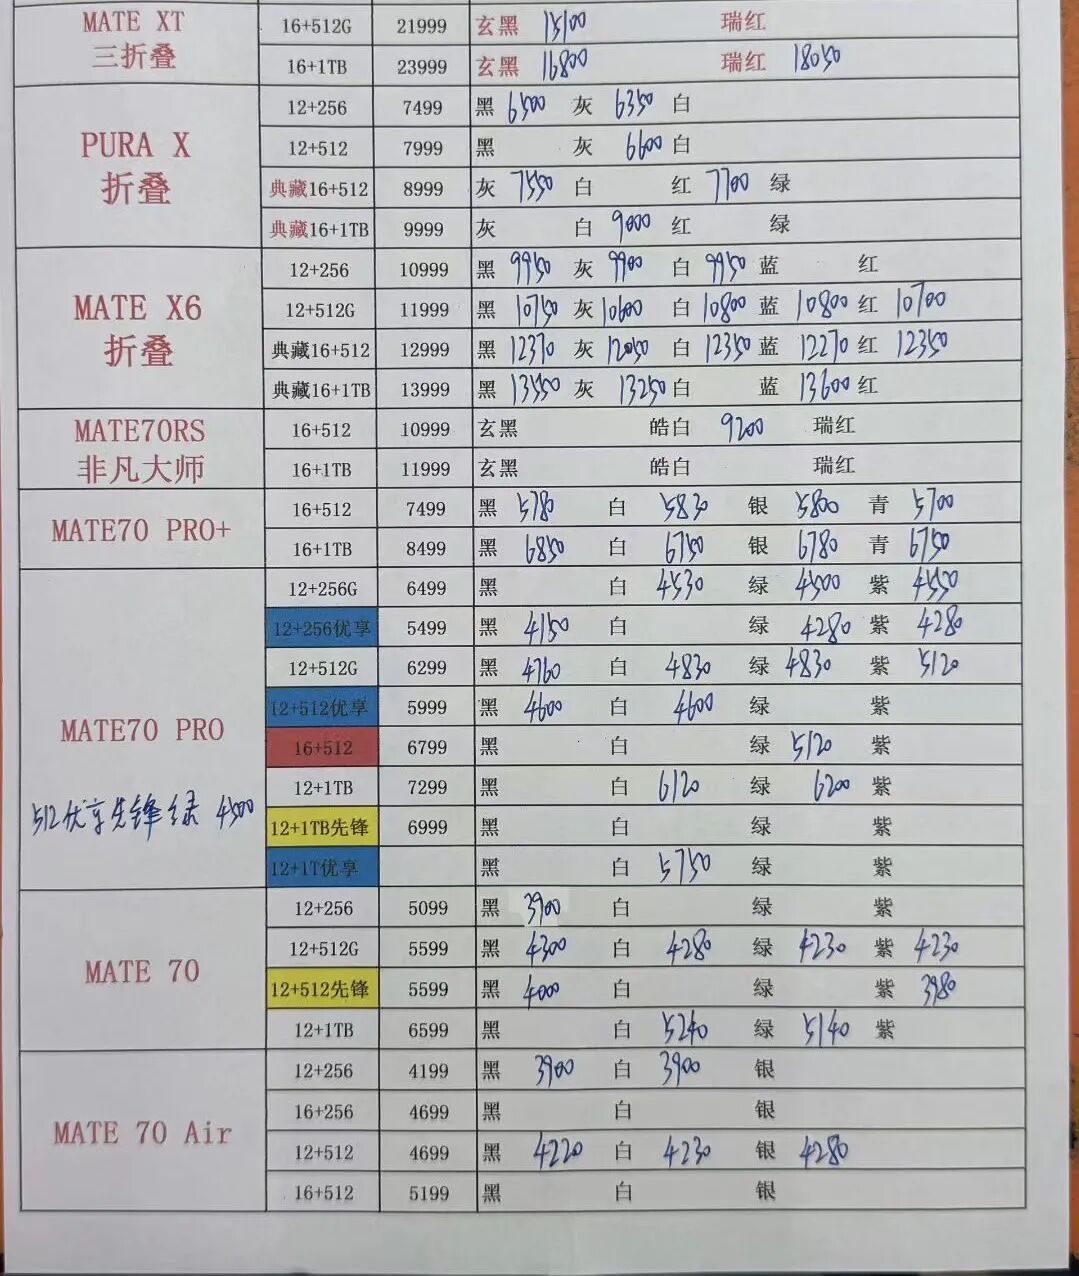 MATE XT
三折叠
16+512G 21999 玄黑 15100 瑞红
16+1TB 23999 玄黑 16800 瑞红 18050
PURA X
折叠
12+256 7499 黑 6500 灰 6350 白
12+512 7999 黑 灰 6600 白
典藏16+512 8999 灰 7550 白 红 7700 绿
典藏16+1TB 9999 灰 白 9000 红 绿
MATE X6
折叠
12+256 10999 黑 9950 灰 9900 白 9950 蓝 红
12+512G 11999 黑 10750 灰 10600 白 10800 蓝 10800 红 10700
典藏16+512 12999 黑 12370 灰 12050 白 12350 蓝 12270 红 12350
典藏16+1TB 13999 黑 13550 灰 13250 白 蓝 13600 红
MATE70RS
非凡大师
16+512 10999 玄黑 皓白 9200 瑞红
16+1TB 11999 玄黑 皓白 瑞红
MATE70 PRO+
16+512 7499 黑 5780 白 5830 银 5800 青 5700
16+1TB 8499 黑 6850 白 6750 银 6780 青 6750
MATE70 PRO
512优享先锋绿 4500
12+256G 6499 黑 白 4530 绿 4500 紫 4550
12+256优享 5499 黑 4150 白 绿 4280 紫 4280
12+512G 6299 黑 4760 白 4830 绿 4830 紫 5120
12+512优享 5999 黑 4600 白 4600 绿 紫
16+512 6799 黑 白 绿 5120 紫
12+1TB 7299 黑 白 6120 绿 6200 紫
12+1TB先锋 6999 黑 白 绿 紫
12+1T优享 黑 白 5750 绿 紫
MATE 70
12+256 5099 黑 3900 白 绿 紫
12+512G 5599 黑 4300 白 4280 绿 4230 紫 4230
12+512先锋 5599 黑 4000 白 绿 紫 3980
12+1TB 6599 黑 白 5240 绿 5140 紫
MATE 70 Air
12+256 4199 黑 3900 白 3900 银
16+256 4699 黑 白 银
12+512 4699 黑 4220 白 4230 银 4280
16+512 5199 黑 白 银